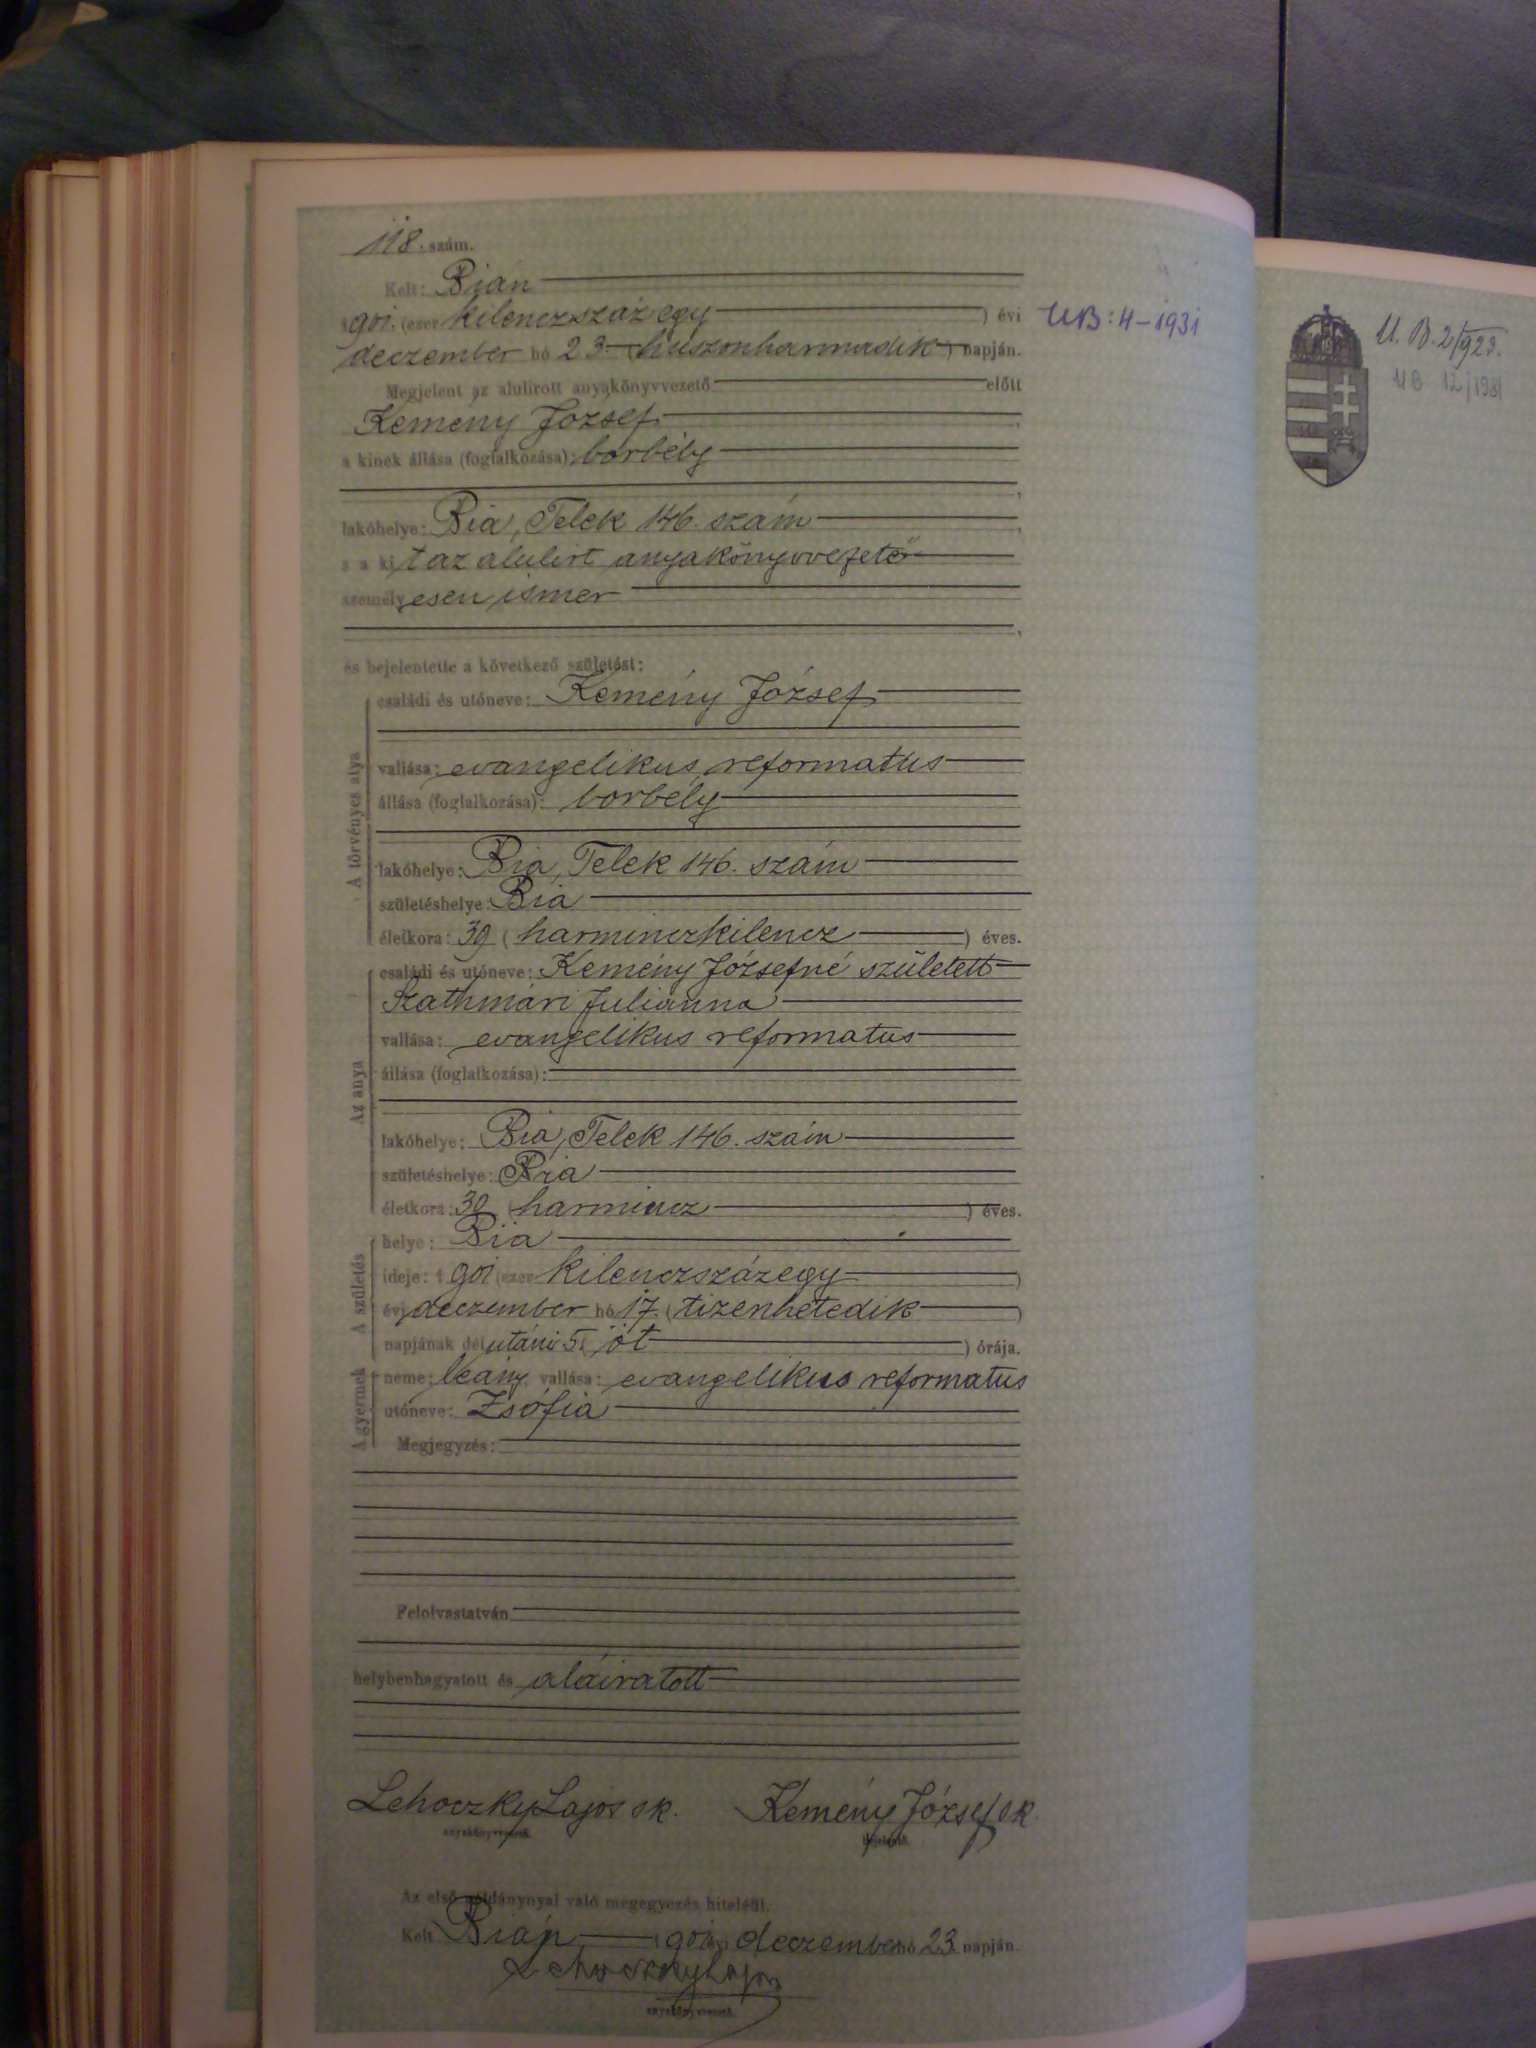 118. szám.
Kelt: Bián
1901. (ezer kilenczszáz egy ) évi
UB: 4-1931
deczember hó 23. (huszonharmadik) napján.
Megjelent az alulírott anyakönyvvezető előtt
Kemény József
a kinek állása (foglalkozása): borbély
lakóhelye: Bia, Telek 146. szám
s a kit az alulirt anyakönyvvezető
személyesen ismer
és bejelentette a következő születést:
A törvényes atya
családi és utóneve: Kemény József
vallása: evangelikus reformatus
állása (foglalkozása): borbély
lakóhelye: Bia, Telek 146. szám
születéshelye: Bia
életkora: 39 (harminczkilencz) éves.
Az anya
családi és utóneve: Kemény Józsefné született
Szathmári Julianna
vallása: evangelikus reformatus
állása (foglalkozása):
lakóhelye: Bia, Telek 146. szám
születéshelye: Bia
életkora: 30 (harmincz) éves.
A születés
helye: Bia
ideje: 1901 (ezer kilenczszázegy )
évi deczember hó 17. (tizenhetedik )
napjának délutáni 5. (öt ) órája.
A gyermek
neme: leány vallása: evangelikus reformatus
utóneve: Zsófia
Megjegyzés:
Felolvastatván
helybenhagyatott és aláiratott
Lehoczky Lajos sk. Kemény József sk.
anyakönyvvezető. bejelentő.
Az első példánynyal való megegyezés hiteléül.
Kelt Bián 1901 évi deczember hó 23 napján.
Lehoczky Lajos
anyakönyvvezető.
U. B. 2/923.
UB 12/1981